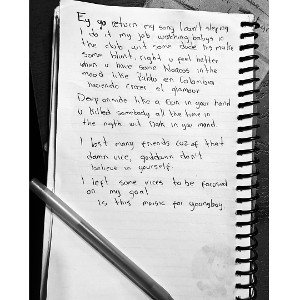 Ey go return my song I can't sleping
I do it my job watching babys in
the club, wit some dude his make
some blunt, right u feel better
when u have some Narcos in the
mood like Pablo en Colombia
haciendo crecer el glamour
Deep inside like a Gun in your hand
u killed somebody all the time in
the night wit Dark in you mind.
I lost many friends cuz of that
damn vice, goddamn don't
believe in yourself.
I left some vices to be focused
on my goal
Is this music for youngboy